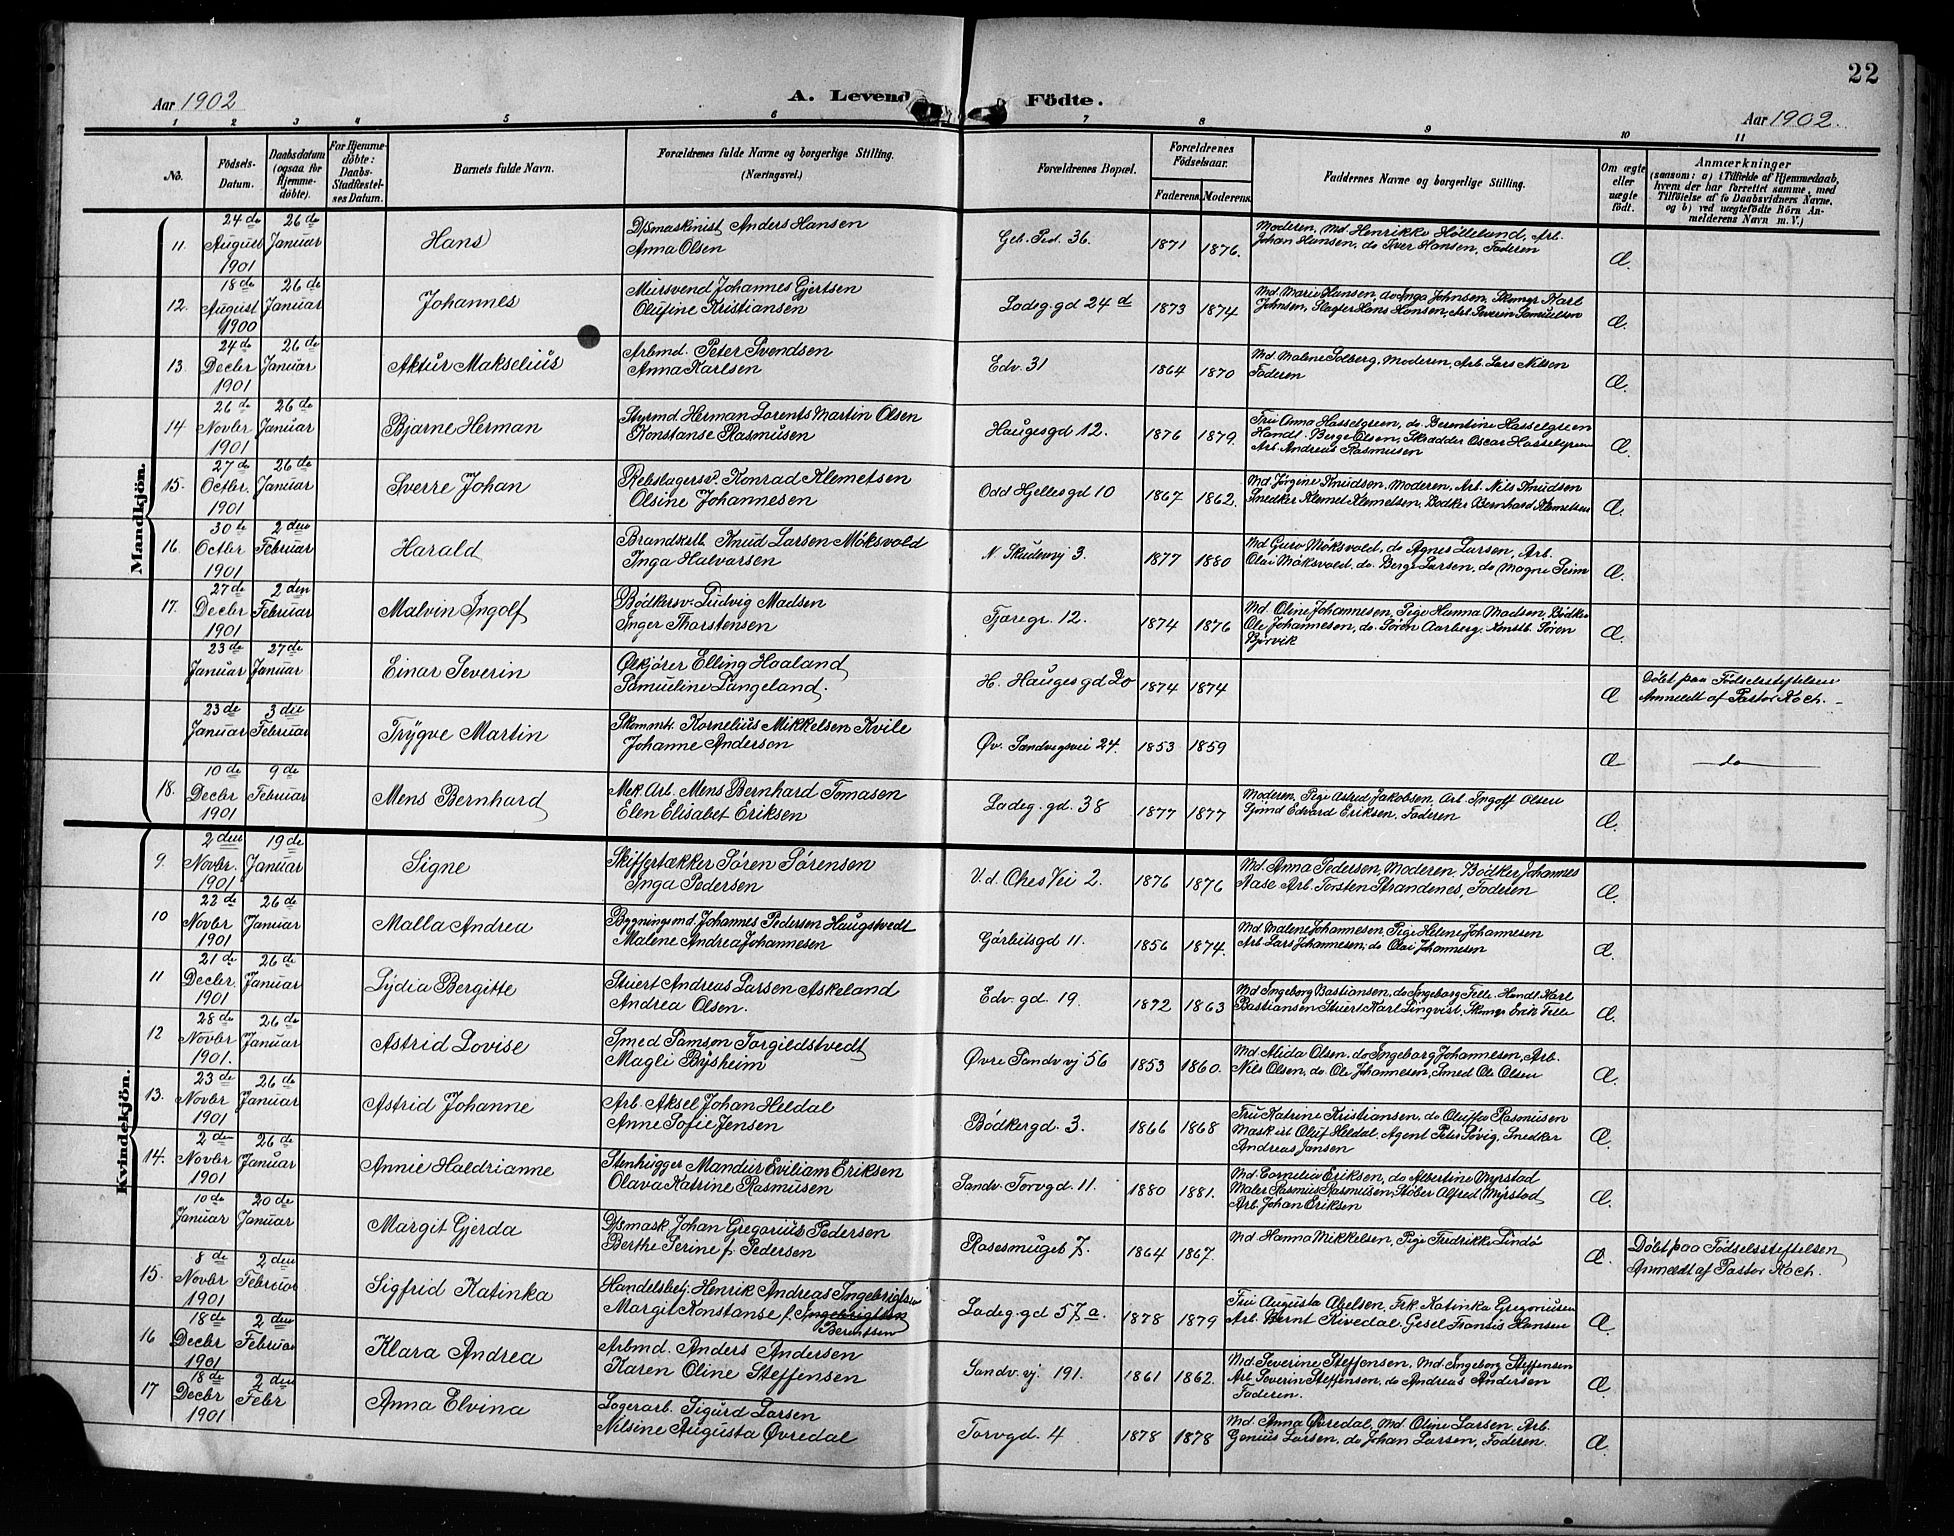 22
Aar 1902
A. Levend Födte.
Aar 1902.
1 2 3 4 5 6 7 8 9 10 11
No.
Födsels-Datum.
Daabsdatum (ogsaa for Hjemmedöbte).
For Hjemmedöbte: Daabs-Stadfestelses Datum.
Barnets fulde Navn.
Forældrenes fulde Navne og borgerlige Stilling. (Næringsvei.)
Forældrenes Bopæl.
Forældrenes Födselsaar.
Faderens. Moderens.
Faddernes Navne og borgerlige Stilling.
Om ægte eller uægte födt.
Anmærkninger
(saasom: a) i Tilfælde af Hjemmedaab, hvem der har forrettet samme, med Tilföielse af to Daabsvidners Navne. og b) ved uægtefödte Börn Anmelderens Navn m. V.)
Mandkjön.
11. 24de August 1901 26de Januar Hans
D/smaskinist Anders Hansen
Anna Olsen
Geb. Ped. 36. 1871 1876.
Moderen, Md. Henrikke Hølleland, Arb.
Johan Hansen, do Iver Hansen, Faderen
Æ.
12. 18de August 1900 26de Januar Johannes
Mursvend Johannes Gjertsen
Olufine Kristiansen
Ladeg.gd 24d 1873 1874
Md. Marie Hansen, do Inga Johnsen, Skomgr Karl
Johnsen, Slagter Hans Hansen, Arb. Severin Samuelsen
Æ.
13. 24de Decbr 1901 26de Januar Aktur Makselius
Arbmd. Peter Svendsen
Anna Karlsen
Edv. 31 1864 1870
Md. Malene Solberg, Moderen, Arb. Lars Nilsen
Faderen
Æ.
14 26de Novbr 1901 26de Januar Bjarne Herman
Styrmd Herman Lorents Martin Olsen
Konstanse Rasmusen
Haugesgd 12. 1876 1879.
Fru Anna Hasselgreen, do Berentine Hasselgreen
Handl. Berge Olsen, Skrædder Oscar Hasselgren
Arb. Andreas Rasmusen
Æ.
15. 27de Octbr. 1901 26de Januar Sverre Johan
Rebslagersv. Konrad Klemetsen
Olsine Johannesen
Odd Hjellesgd 10 1867 1862.
Md Jørgine Knudsen, Moderen, Arb. Nils Knudsen
Snedker Klemet Klemetsen, Bødker Bernhard Klemetsen
Æ.
16. 30te Octbr 1901 2den Februar Harald
Brandkstb. Knud Larsen Møksvold
Inga Halvorsen
N. Skudevj 3. 1877 1880
Md Guro Møksvold, do Agnes Larsen, Arb.
Olai Møksvold, do. Berge Larsen, do Mogne Seim
Æ.
17. 27de Decbr 1901 2den Februar Malvin Ingolf
Bødkersv. Ludvig Madsen
Inger Thorstensen
Fjæregr. 12. 1874 1876
Md. Oline Johannesen, Pige Hanna Madsen, Bødker
Ole Johannesen, do. Søren Aarberg. Konstb. Søren
Æ.
23de Januar 27de Januar Einar Severin
Ølkjører Elling Haaland
Samueline Langeland.
H. Haugesgd 20 1874 1874
Æ
Døbt paa Fødselsstiftelsen
Anmeldt af Pastor Koch.
23de Januar 3die Februar Trygve Martin
Skommtr. Kornelius Mikkelsen Kvile
Johanne Anderson
Øv. Sandvigsvei 24. 1853 1859
Æ
do
18. 10de Decbr 1901 9de Februar Mens Bernhard
Mek. Arb. Mens Bernhard Tomasen
Elen Elisabet Eriksen
Ladeg. gd. 38 1877 1877
Moderen, Pige Astrid Jakobsen, Arb. Ingolf Olsen
Sjømd Edvard Eriksen, Faderen
Æ.
Kvindekjön.
9. 2den Novbr. 1901 19de Januar Signe
Skiffertækker Søren Sørensen
Inga Pedersen
V. d. Ohes Vei 2. 1876 1876
Md. Anna Pedersen, Moderen, Bødker Johannes
Aase Arb. Torsten Strandenes, Faderen
Æ.
10 22de Novbr 1901 26de Januar Malla Andrea
Bygningsmd. Johannes Pedersen Haugstvedt
Malene Andrea Johannesen
Görbitsgd 11. 1856 1874.
Md Malene Johannesen, Pige Helene Johannesen
Arb. Lars Johannesen, do Olai Johannesen
Æ.
11 21de Decbr. 1901 26de Januar Lydia Bergitte
Stuert Andreas Larsen Askeland
Andrea Olsen.
Edv. gd. 19. 1872 1863
Md Ingeborg Bastiansen, do Ingeborg Telle. Handl. Karl
Bastiansen Stuert Karl Linqvist, Skomgr Erik Telle
Æ.
12 28de Novbr 1901. 26de Januar Astrid Lovise
Smed Samson Torgildstvedt
Magli Bysheim
Øvre Sandv vj 56 1853 1860.
Md Alida Olsen, do Ingeborg Johannesen, Arb.
Nils Olsen, do. Ole Johannesen, Smed Ole Olsen
Æ.
13. 23de Novbr 1901 26de Januar Astrid Johanne
Arb. Aksel Johan Heldal
Anne Sofie Jensen
Bödkergd. 3. 1866 1868
Fru Katrine Kristiansen, do Oluffa Rasmusen
Mask.ist Oluf Heldal, Agent Peter Søvig, Snedker
Andreas Jansen
Æ.
14. 2den Novbr 1901 26de Januar Annie Haldrianne
Stenhugger Mandur Eviliam Eriksen
Olava Katrine Rasmusen
Sandv. Torvgd. 11. 1880 1881.
Md. Cornelia Eriksen, do Albertine Myrstad
Maler Rasmus Rasmusen, Støber Alfred Myrstad
Arb. Johan Eriksen
Æ.
10de Januar 20de Januar Margit Gjerda
D/smask. Johan Gregorius Pedersen
Berthe Serine f. Pedersen
Rosesmuget 7. 1864 1867.
Md. Hanna Mikkelsen, Pige Fredrikke Lindö
Æ.
Døbt paa Fødselsstiftelsen
Anmeldt af Pastor Koch.
15. 8de Novbr 1901 2den Februar Sigfrid Katinka
Handelsbetj. Henrik Andreas Ingebrigtsen
Margit Konstanse f. Ingebrigtsen
Berentsen
Ladeg gd 57a. 1878 1879
Fru Augusta Abelsen, Frk. Katinka Gregoriusen
Arb. Bernt Rivedal, Gesel Fransis Hansen
Æ.
16 18de Decbr 1901 2den Februar Klara Andrea
Arbmd. Anders Andersen
Karen Oline Steffensen
Sandv. vj. 191. 1861 1862.
Md. Severine Steffensen, Md. Ingeborg Steffensen
Arb. Severin Steffensen, do Andreas Andersen
Faderen.
Æ.
17 18de Decbr 1901 2den Febr Anna Elvina
Logerarb. Sigurd Larsen
Nilsine Augusta Øvredal
Torvgd. 4 1878 1878
Md. Anna Øvredal, Md. Oline Larsen, Arb.
Genius Larsen, do Johan Larsen, Faderen.
Æ.